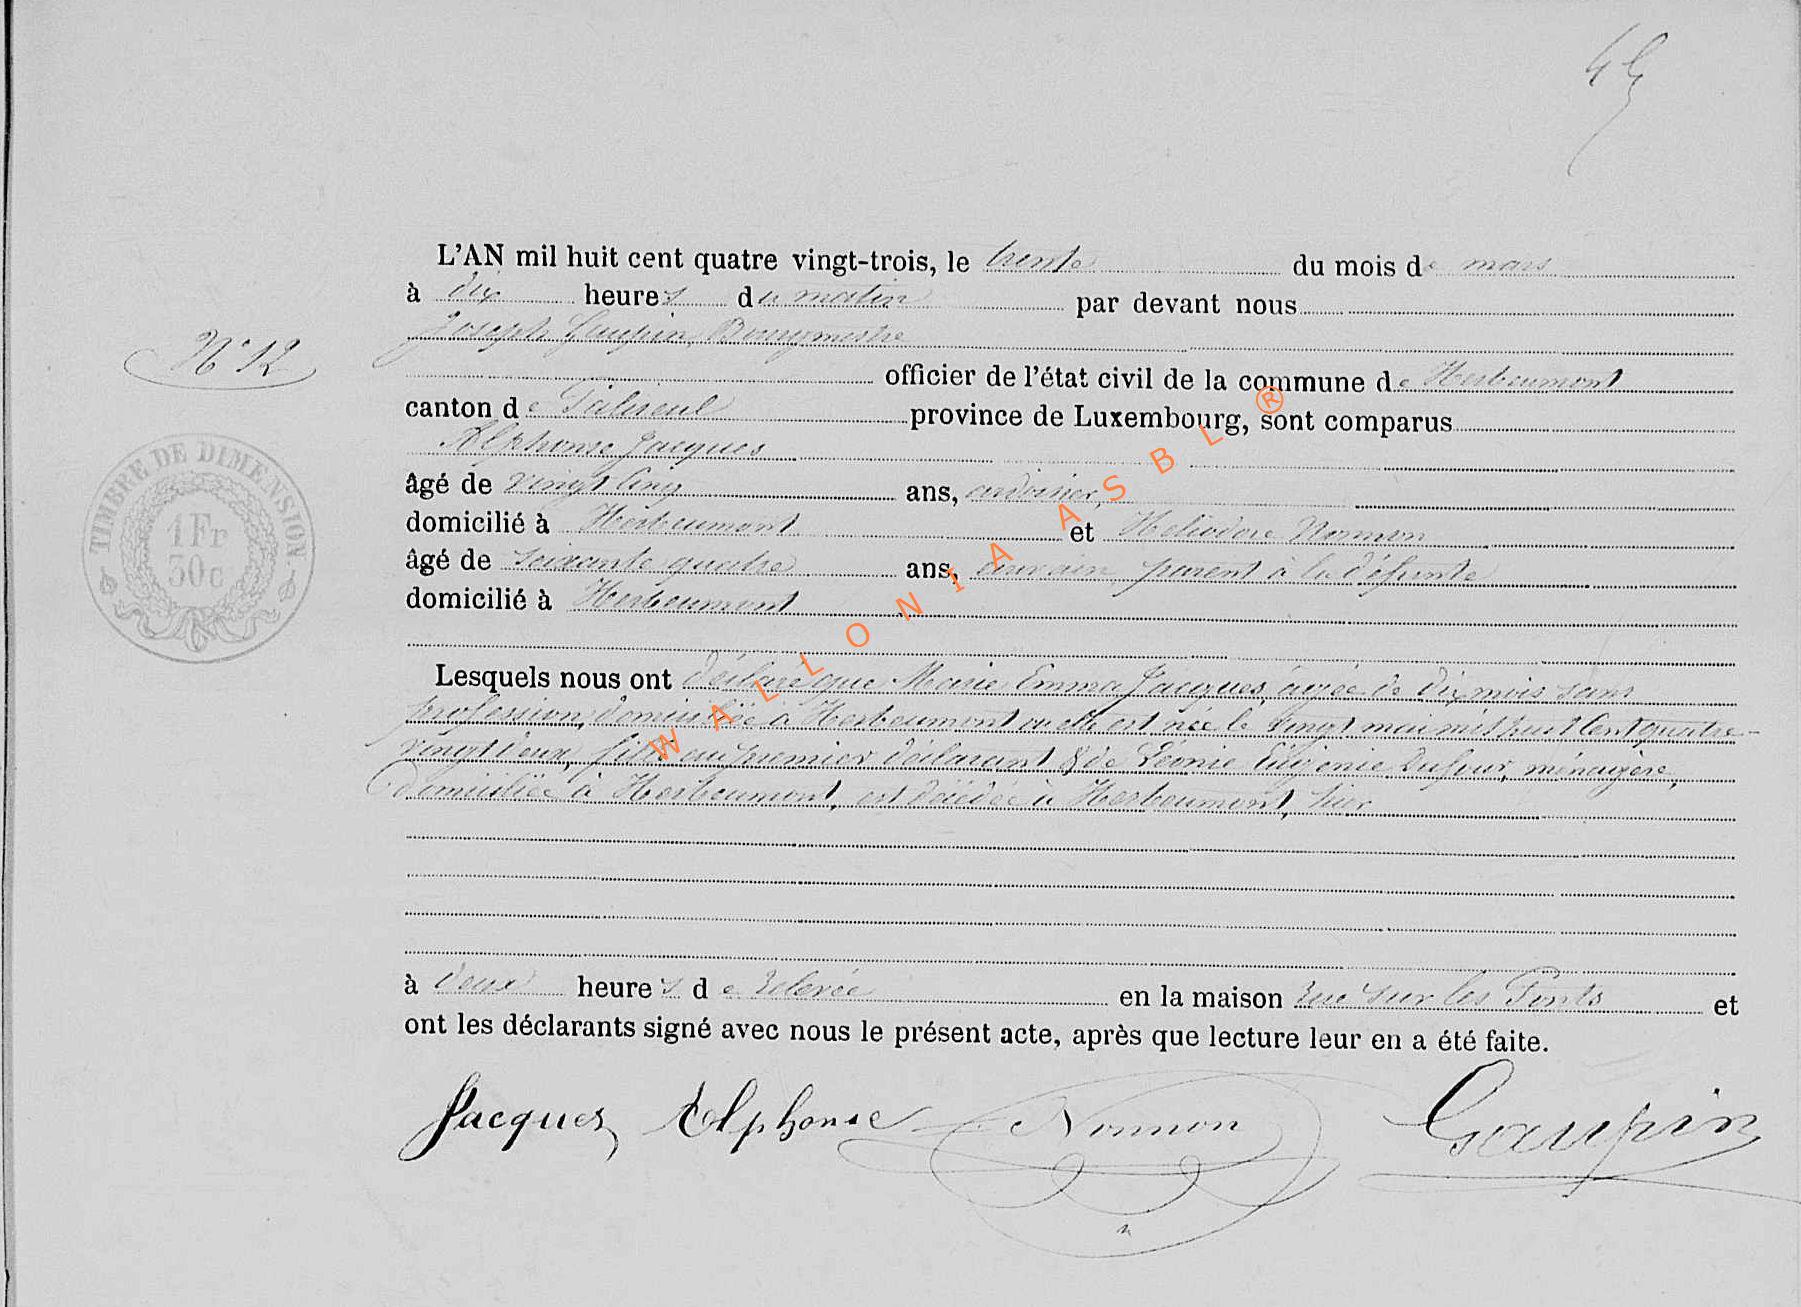 45
L'AN mil huit cent quatre vingt-trois, le trente du mois de mars
à dix heures du matin par devant nous
Joseph Gaupin, Bourgmestre
N° 12
officier de l'état civil de la commune de Herbeumont
canton de Paliseul province de Luxembourg, sont comparus
Alphonse Jacques
âgé de vingt cinq ans, ardoisier,
domicilié à Herbeumont et Héliodore Nonnon
âgé de soixante quatre ans, parent à la défunte
domicilié à Herbeumont
TIMBRE DE DIMENSION
1 Fr
30c
Lesquels nous ont déclaré que Marie Emma Jacques, agée de dix mois sans
profession, domiciliée à Herbeumont où elle est née le vingt mai mil huit cent quatre-
vingt deux, fille au premier déclarant & de Léonie Eugénie Dufour, ménagère,
domiciliée à Herbeumont, est décédée à Herbeumont, hier
à deux heures de relevée en la maison rue sur les Ponts et
ont les déclarants signé avec nous le présent acte, après que lecture leur en a été faite.
Jacques Alphonse Nonnon Gaupin
WALLONIA ASBL ®